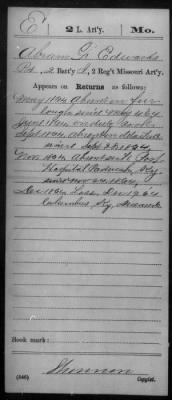 E 2 L. Art'y. Mo.
Abram G. Edwards
Pvt., 2 Batt'y, 2 Reg't Missouri Art'y.
Appears on Returns as follows:
May 1864 Absent on fur-
lough since May 4, 64
June 1864 on duty
Sept. 1864 Absent on detached
since Sept. 1864
Nov. 1864 Absent sick Post
Hospital Paducah, Ky.
since Nov 24, 1864
Dec 1864 Loss, Dec 12 64
Columbus, Ky.
Book mark:
(546) Copyist.